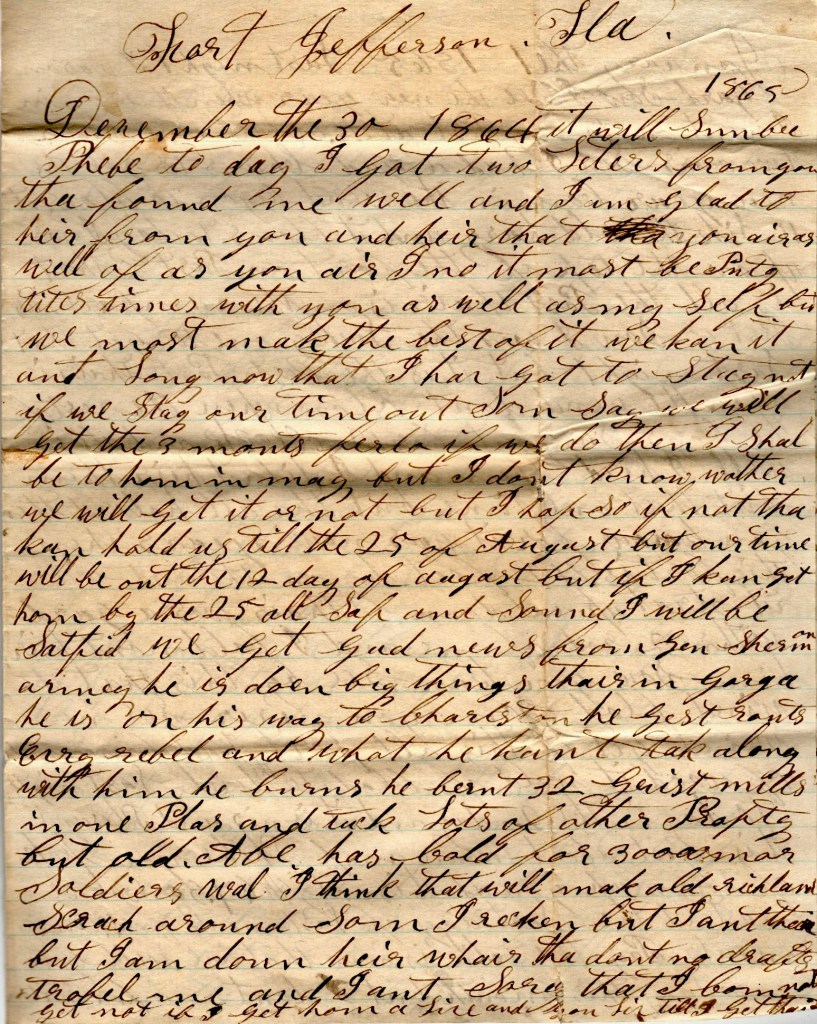 Fort Jefferson. Fla.
1865
December the 30 1864 it will Sun bee
Phebe to day I got two Leters from you
tha found me well and I am glad to
heir from you and heir that you air as
well of as you air I no it most be Prity
tites times with you as well as my Self but
we most make the best of it we kan it
ant Long now that I hav got to Stay not
if we Stay our time out Som Say we will
get the 3 monts ferlo if we do then I Shal
be to hom in may but I dont know wather
we will get it or not but I hop So if not tha
kan hold us till the 25 of August but our time
will be out the 12 day of august but if I kan get
hom by the 25 all Saf and Sound I will be
Satfid we get gud news from Gen Sherman
armey he is doen big things thair in Gorga
he is on his way to Charlston he gest routs
Evry rebel and what he kant tak along
with him he burns he bernt 32 Grist mills
in one Plas and tuck Lots of other Propty
but old. Abe has cold for 300000 mor
Soldiers wal I think that will mak old richland
Scrach around Som I recken but I ant thair
but I am doun heir whair tha dont no drafts
trobel me and I ant Sory that I bom not
get not if I get hom a Live and you Liv till I get thair